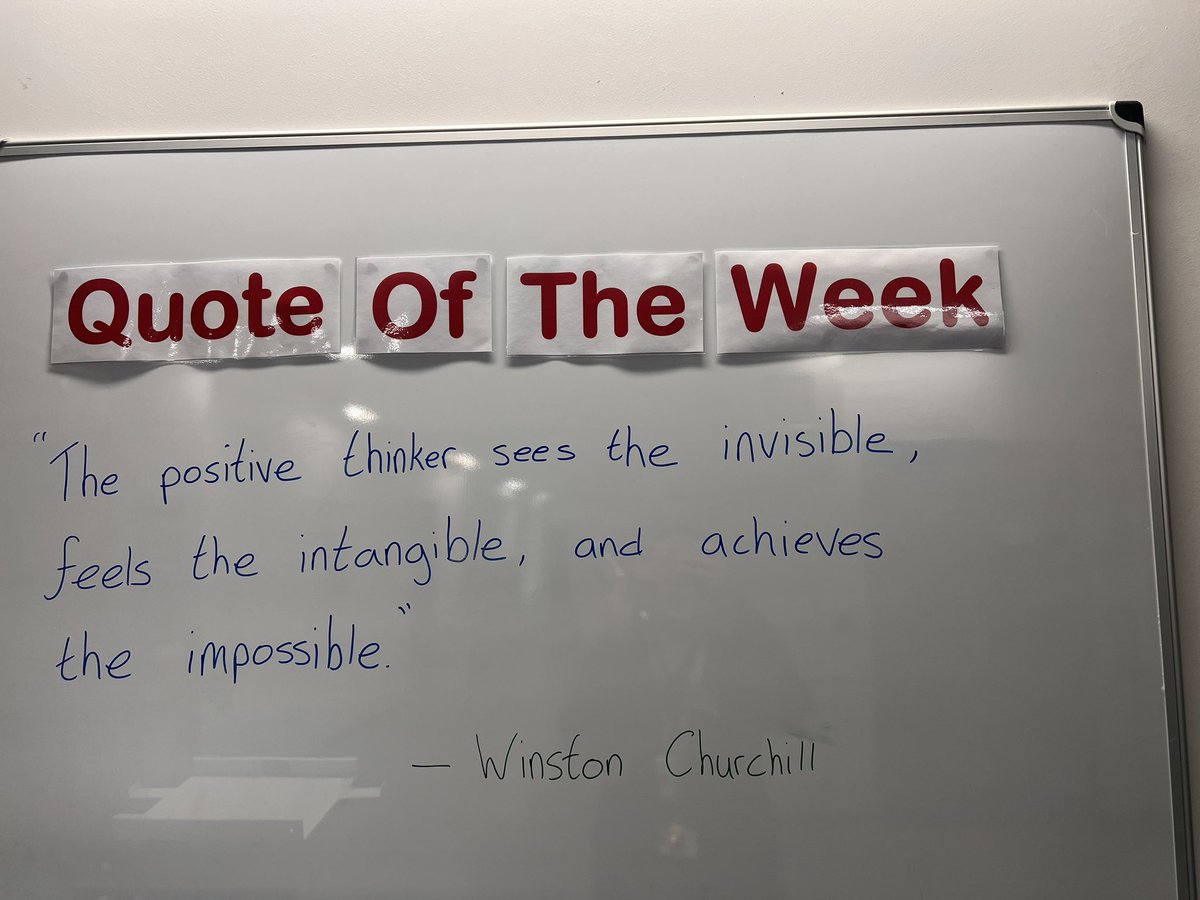 Quote Of The Week
"The positive thinker sees the invisible,
feels the intangible, and achieves
the impossible."
— Winston Churchill